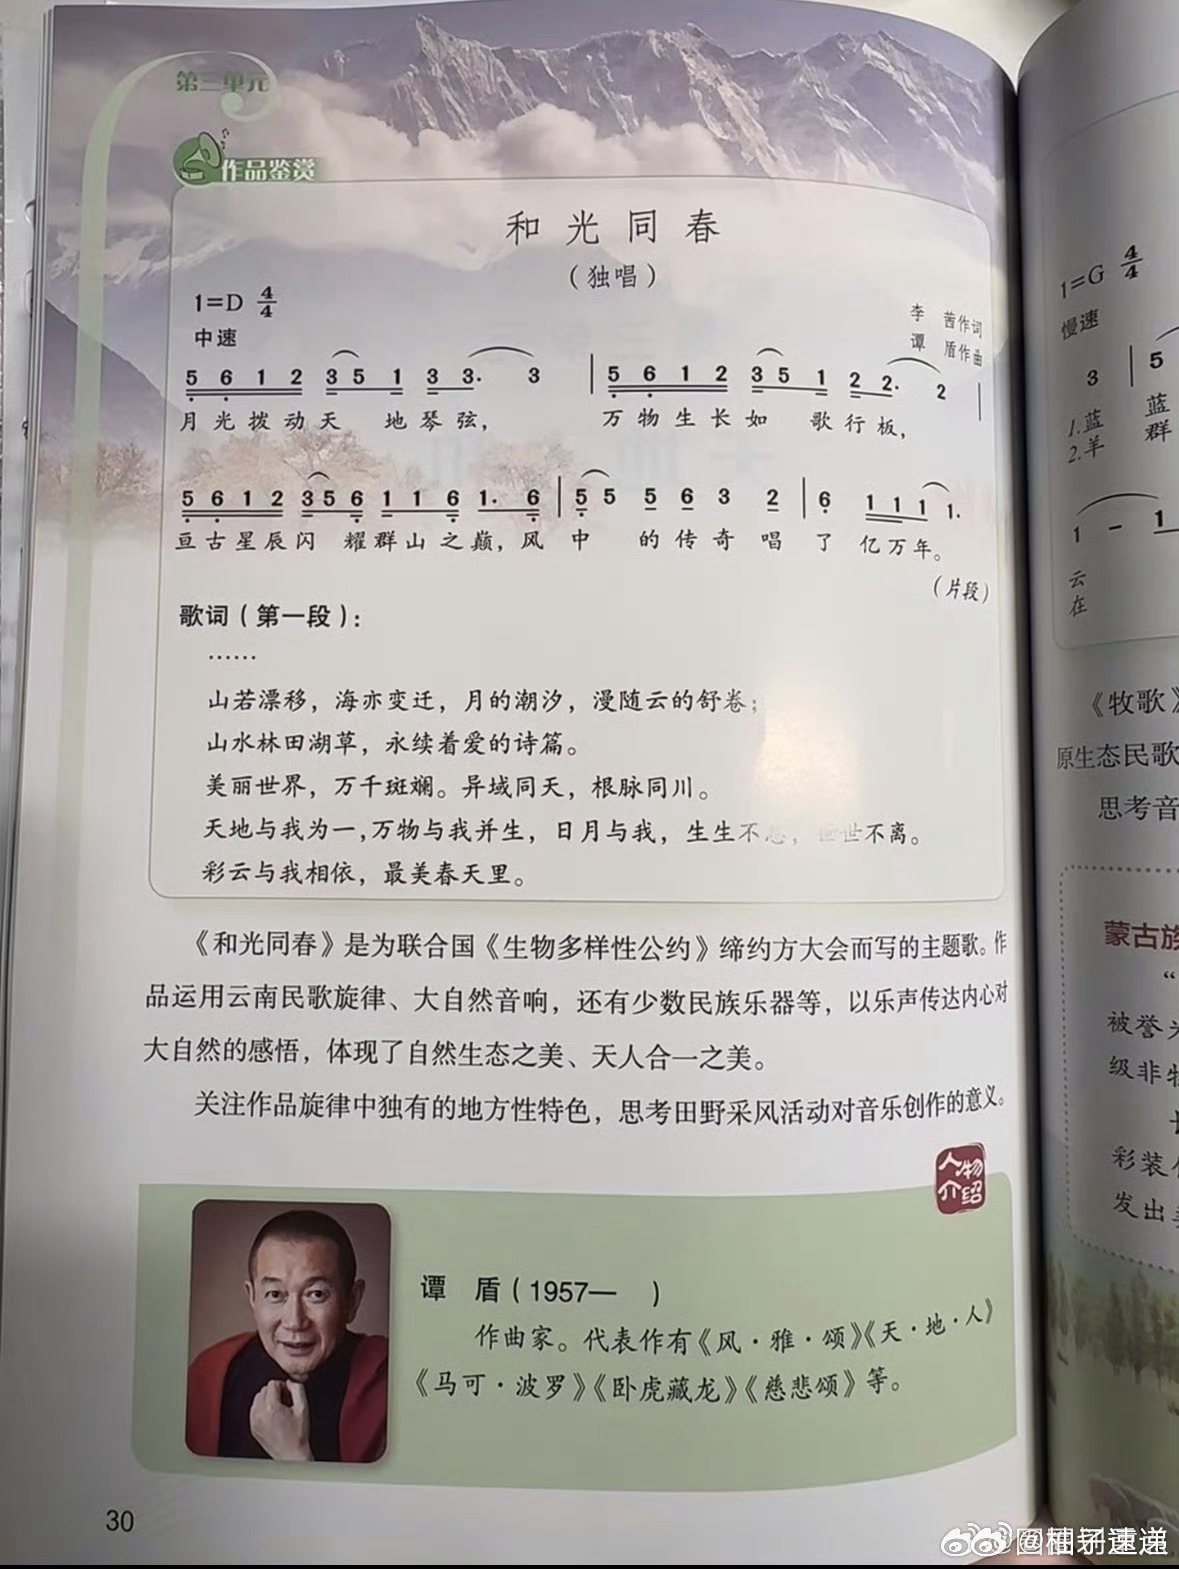 第三单元
作品鉴赏
和光同春
（独唱）
1=D 4/4
中速
李 茜作词
谭 盾作曲
5 6 1 2 3 5 1 3 3. 3 | 5 6 1 2 3 5 1 2 2. 2 |
月光拨动天 地琴弦， 万物生长如 歌行板，
5 6 1 2 3 5 6 1 1 6 1. 6 | 5 5 5 6 3 2 | 6 1 1 1 1.
亘古星辰闪 耀群山之巅，风 中 的传奇唱 了 亿万年。
（片段）
歌词（第一段）：
……
山若漂移，海亦变迁，月的潮汐，漫随云的舒卷；
山水林田湖草，永续着爱的诗篇。
美丽世界，万千斑斓。异域同天，根脉同川。
天地与我为一，万物与我并生，日月与我，生生不息，世世不离。
彩云与我相依，最美春天里。
《和光同春》是为联合国《生物多样性公约》缔约方大会而写的主题歌。作
品运用云南民歌旋律、大自然音响，还有少数民族乐器等，以乐声传达内心对
大自然的感悟，体现了自然生态之美、天人合一之美。
关注作品旋律中独有的地方性特色，思考田野采风活动对音乐创作的意义。
人物
介绍
谭 盾（1957— ）
作曲家。代表作有《风·雅·颂》《天·地·人》
《马可·波罗》《卧虎藏龙》《慈悲颂》等。
30
1=G 4/4
慢速
3 | 5
1.蓝 蓝
2.羊 群
1 - 1
云
在
《牧歌》
原生态民歌
思考音
蒙古族
“
被誉为
级非物
彩装
发出